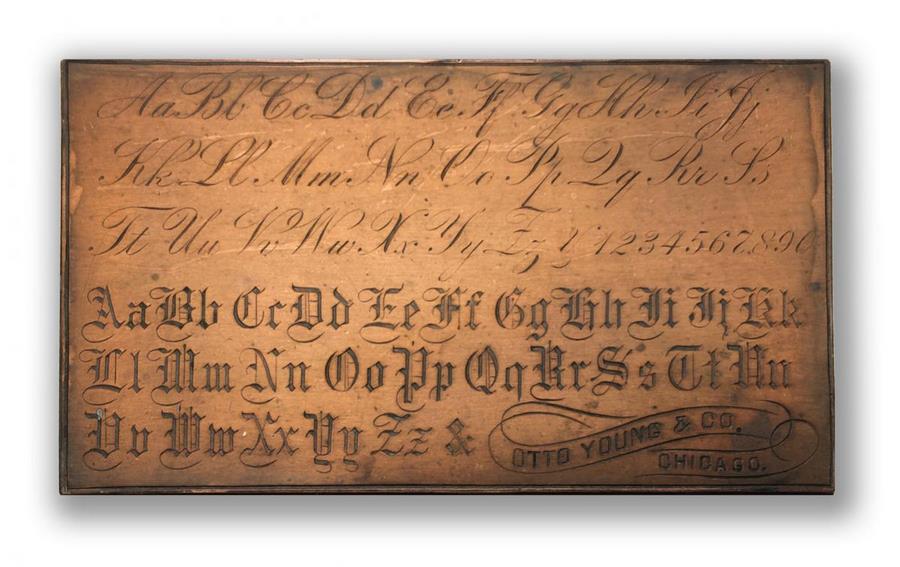 Aa Bb Cc Dd Ee Ff Gg Hh Ii Jj
Kk Ll Mm Nn Oo Pp Qq Rr Ss
Tt Uu Vv Ww Xx Yy Zz & 1234567890
Aa Bb Cc Dd Ee Ff Gg Hh Ii Jj Kk
Ll Mm Nn Oo Pp Qq Rr Ss Tt Uu
Vv Ww Xx Yy Zz &
OTTO YOUNG & CO.
CHICAGO.